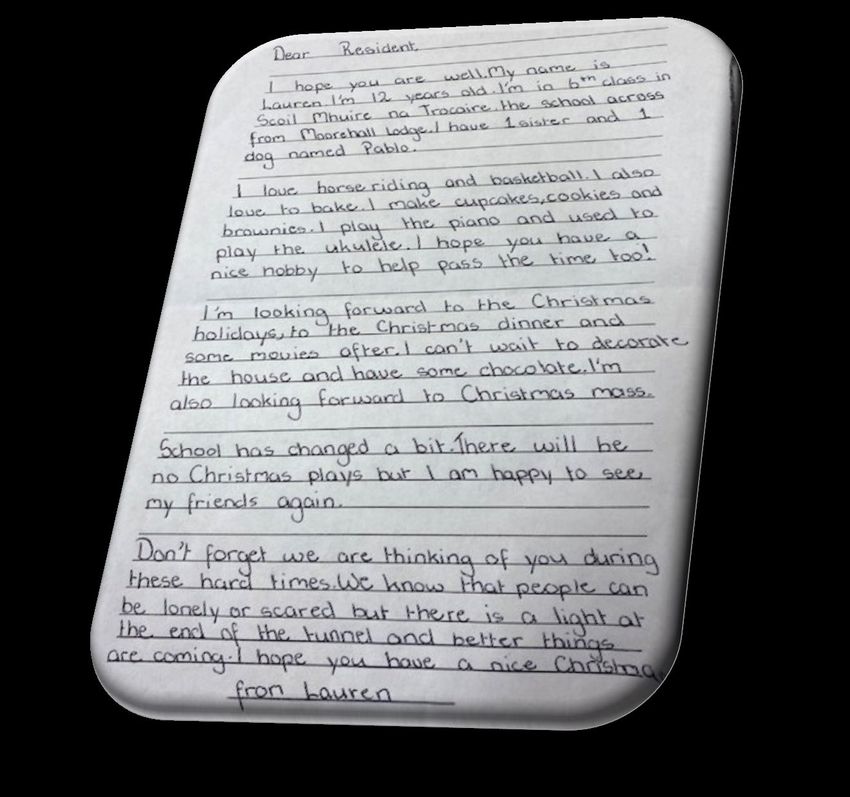 Dear Resident
I hope you are well.My name is
Lauren.I'm 12 years old.I'm in 6th class in
Scoil Mhuire na Trocaire.the school across
from Moorehall Lodge.I have 1 sister and 1
dog named Pablo.
I love horseriding and basketball.I also
love to bake.I make cupcakes,cookies and
brownies.I play the piano and used to
play the ukulele.I hope you have a
nice hobby to help pass the time too!
I'm looking forward to the Christmas
holidays,to the Christmas dinner and
some movies after.I can't wait to decorate
the house and have some chocolate.I'm
also looking forward to Christmas mass.
School has changed a bit.There will be
no Christmas plays but I am happy to see
my friends again.
Don't forget we are thinking of you during
these hard times.We know that people can
be lonely or scared but there is a light at
the end of the tunnel and better things
are coming.I hope you have a nice Christma
from Lauren